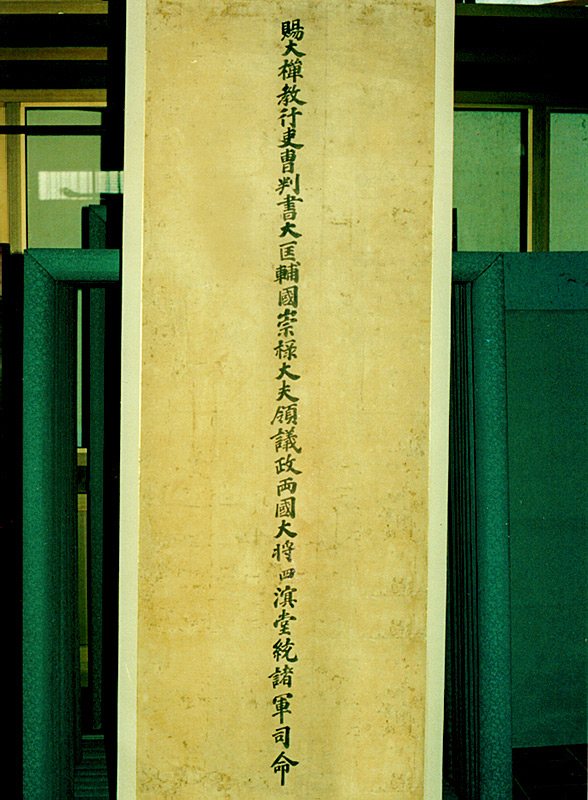 賜大禪教行吏曹判書大匡輔國崇祿大夫領議政両國大將四溟堂統諸軍司命